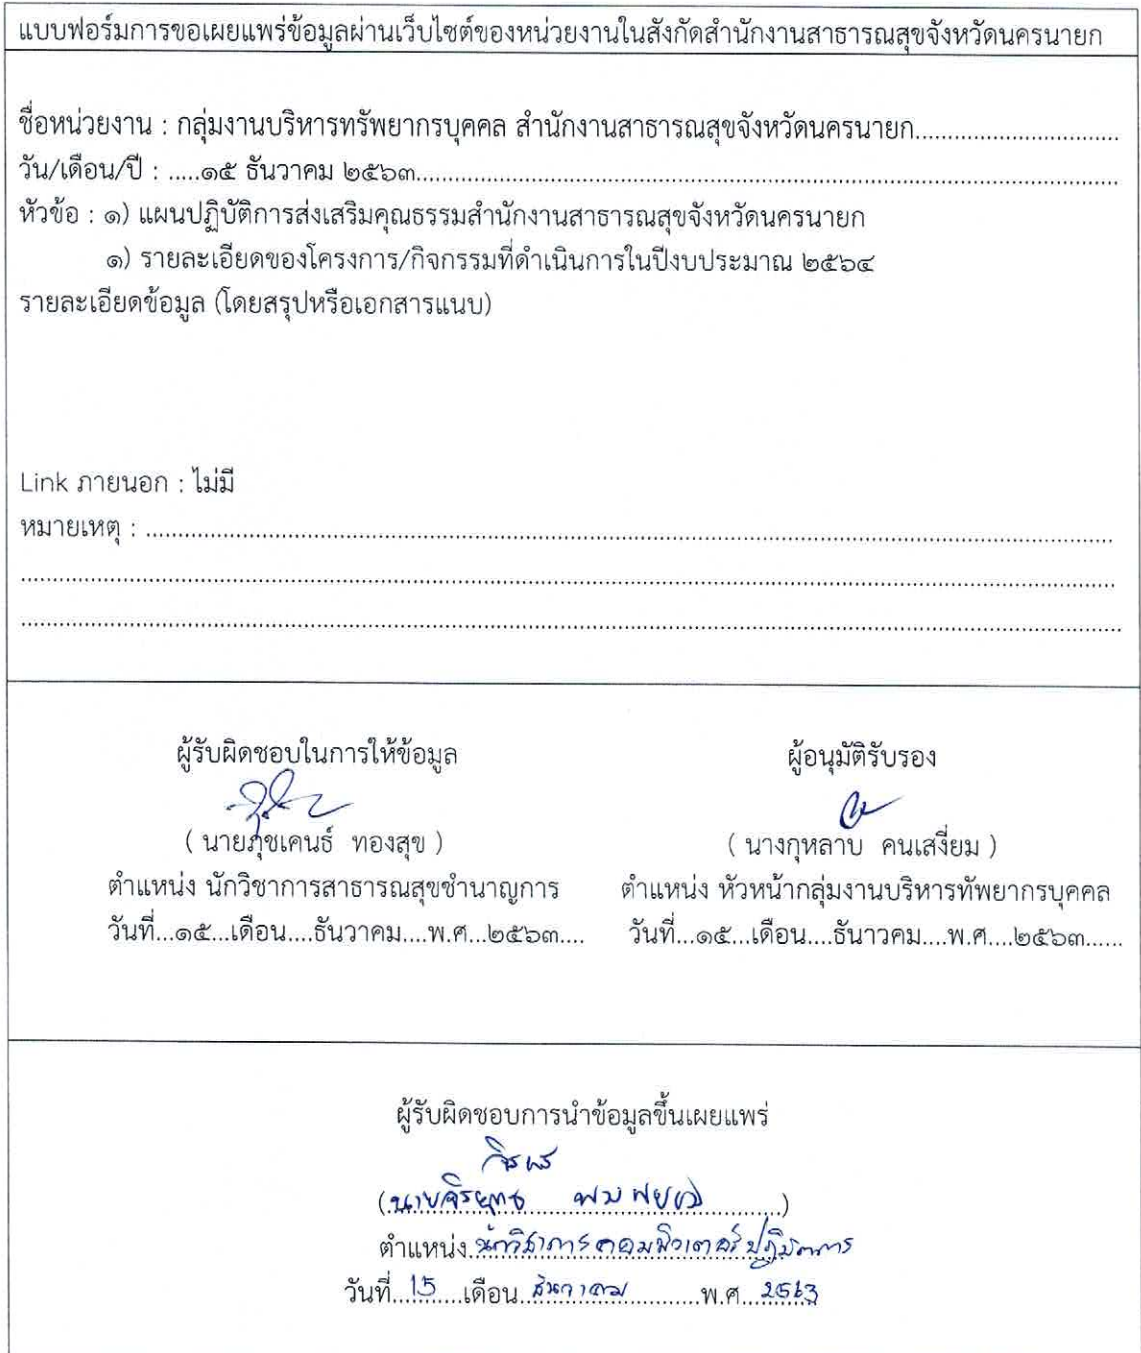 แบบฟอร์มการขอเผยแพร่ข้อมูลผ่านเว็บไซต์ของหน่วยงานในสังกัดสำนักงานสาธารณสุขจังหวัดนครนายก
ชื่อหน่วยงาน : กลุ่มงานบริหารทรัพยากรบุคคล สำนักงานสาธารณสุขจังหวัดนครนายก................................
วัน/เดือน/ปี : .....๑๕ ธันวาคม ๒๕๖๓................................................................................
หัวข้อ : ๑) แผนปฏิบัติการส่งเสริมคุณธรรมสำนักงานสาธารณสุขจังหวัดนครนายก
๑) รายละเอียดของโครงการ/กิจกรรมที่ดำเนินการในปีงบประมาณ ๒๕๖๔
รายละเอียดข้อมูล (โดยสรุปหรือเอกสารแนบ)
Link ภายนอก : ไม่มี
หมายเหตุ : ................................................................................
................................................................................
................................................................................
ผู้รับผิดชอบในการให้ข้อมูล
( นายภุชเคนธ์ ทองสุข )
ตำแหน่ง นักวิชาการสาธารณสุขชำนาญการ
วันที่...๑๕...เดือน....ธันวาคม....พ.ศ...๒๕๖๓....
ผู้อนุมัติรับรอง
( นางกุหลาบ คนเสงี่ยม )
ตำแหน่ง หัวหน้ากลุ่มงานบริหารทัพยากรบุคคล
วันที่...๑๕...เดือน....ธันาวคม....พ.ศ....๒๕๖๓......
ผู้รับผิดชอบการนำข้อมูลขึ้นเผยแพร่
(นายจิรยุทธ)
ตำแหน่ง นักวิชาการคอมพิวเตอร์ปฏิบัติการ
วันที่...15......เดือน..ธันวาคม............พ.ศ...2563